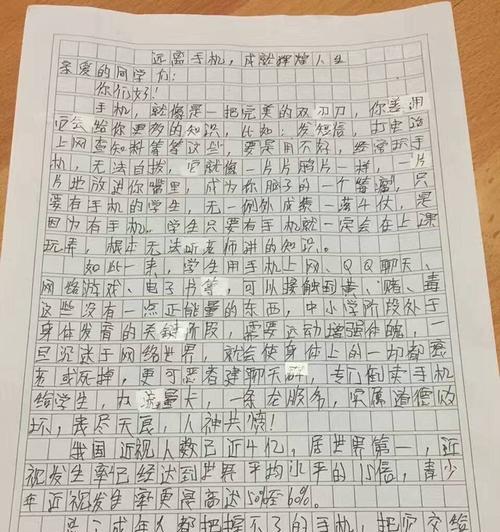 远离手机，成就辉煌人生
亲爱的同学们：
你们好！
手机，就像是一把完美的双刃刀，你善用
它会给你更多的知识，比如：发短信，打电话
上网查知料等等这些，要是用不好，经常玩手
机，无法自拔，它就像一片片鸦片一样，一片
片地放进你嘴里，成为你脑子的一个管家，只
要有手机的学生，无一例外成绩一落千仗，是
因为有手机，学生只要有手机就一定会在上课
玩弄，根本无法听老师讲的知识。
如此一来，学生用手机上网、QQ聊天、
网络游戏、电子书等，可以接触到黄、赌、毒
这些没有一点正能量的东西，中小学阶段处于
身体发育的关键阶段，需要运动增强体魄，一
旦沉迷于网络世界，就会使身体上的一切都萎
或死掉，更可恶者建聊天群，专门倒卖手机
给学生，办流量卡，一条龙服务，实属道德败
坏，丧尽天良，人神共愤！
我国近视人数已近4亿，居世界第一，近
视发生率已经达到世界平均水平的1.5倍，青少
年近视发生率更是高达50%至60%。
成年人都把握不了的手机，把它交给